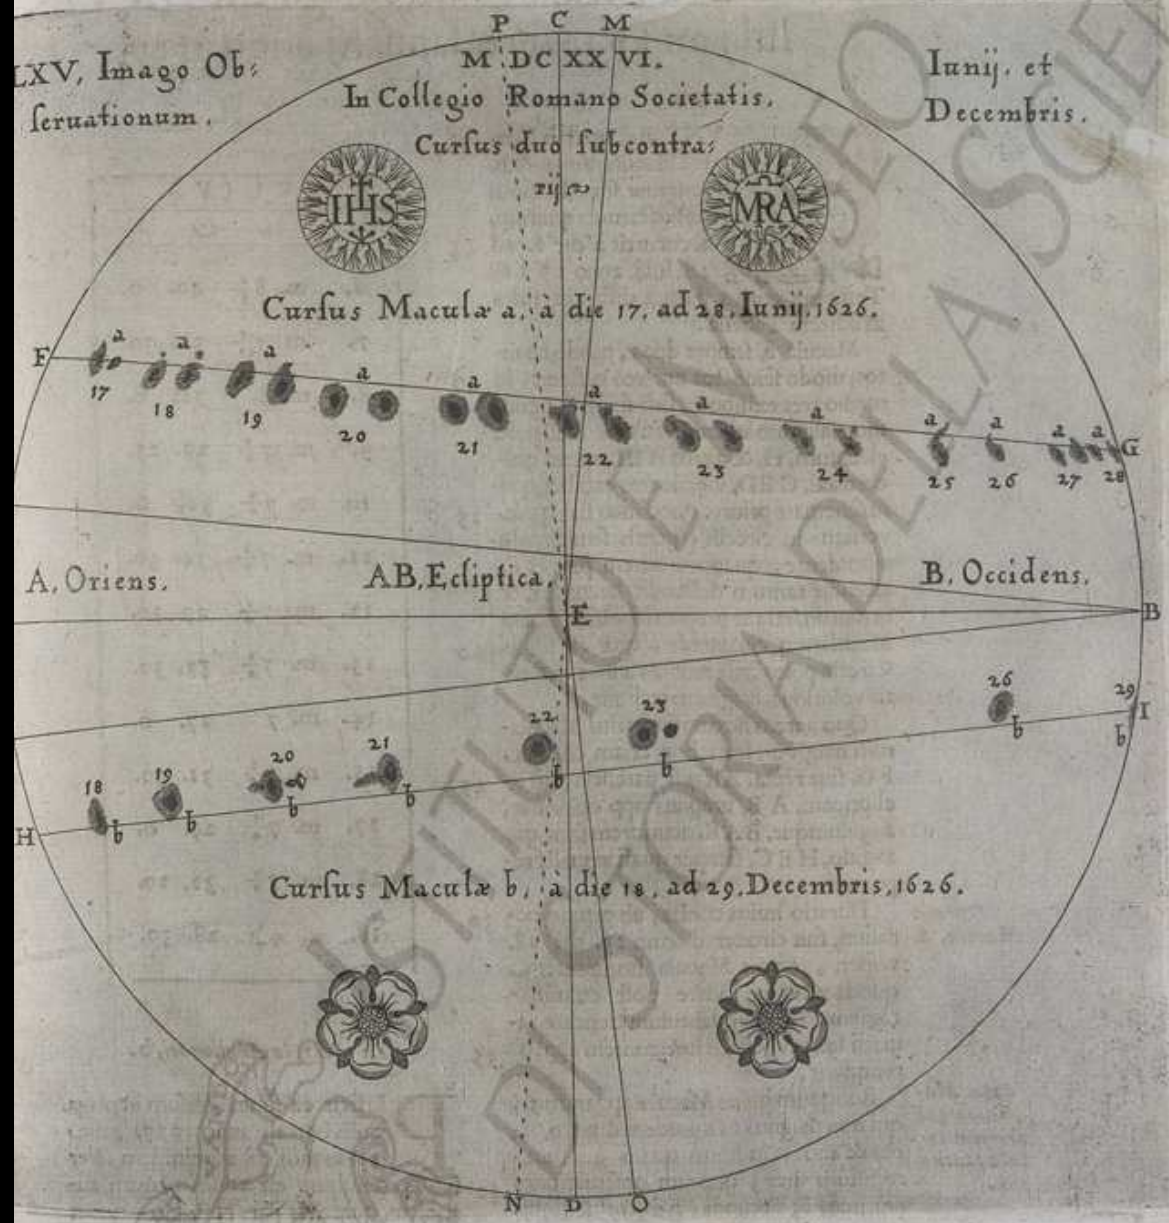 P C M
LXV, Imago Ob:
ſeruationum.
M DC XX VI.
In Collegio Romano Societatis.
Curſus duo ſubcontra:
rij
Iunij. et
Decembris.
IHS
MRA
Curſus Maculæ a, à die 17, ad 28, Iunij, 1626.
F a a a a a a a a a a a a G
17 18 19 20 21 22 23 24 25 26 27 28
A, Oriens. AB, Ecliptica. B, Occidens.
E B
18 19 20 21 22 23 26 29 I
H b b b b b b b b
Curſus Maculæ b, à die 18, ad 29, Decembris, 1626.
N D O
ISTITUTO E MUSEO
DI STORIA DELLA SCIE